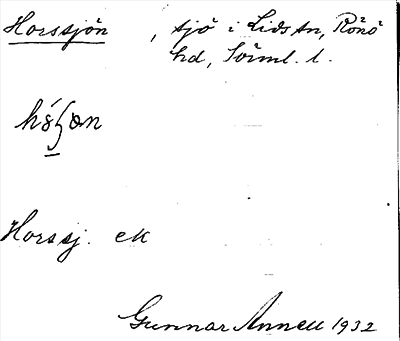 Horssjön, sjö i Lids sn, Rönö
hd, Sörml. l.
Horssj. ek
Gunnar Annell 1932